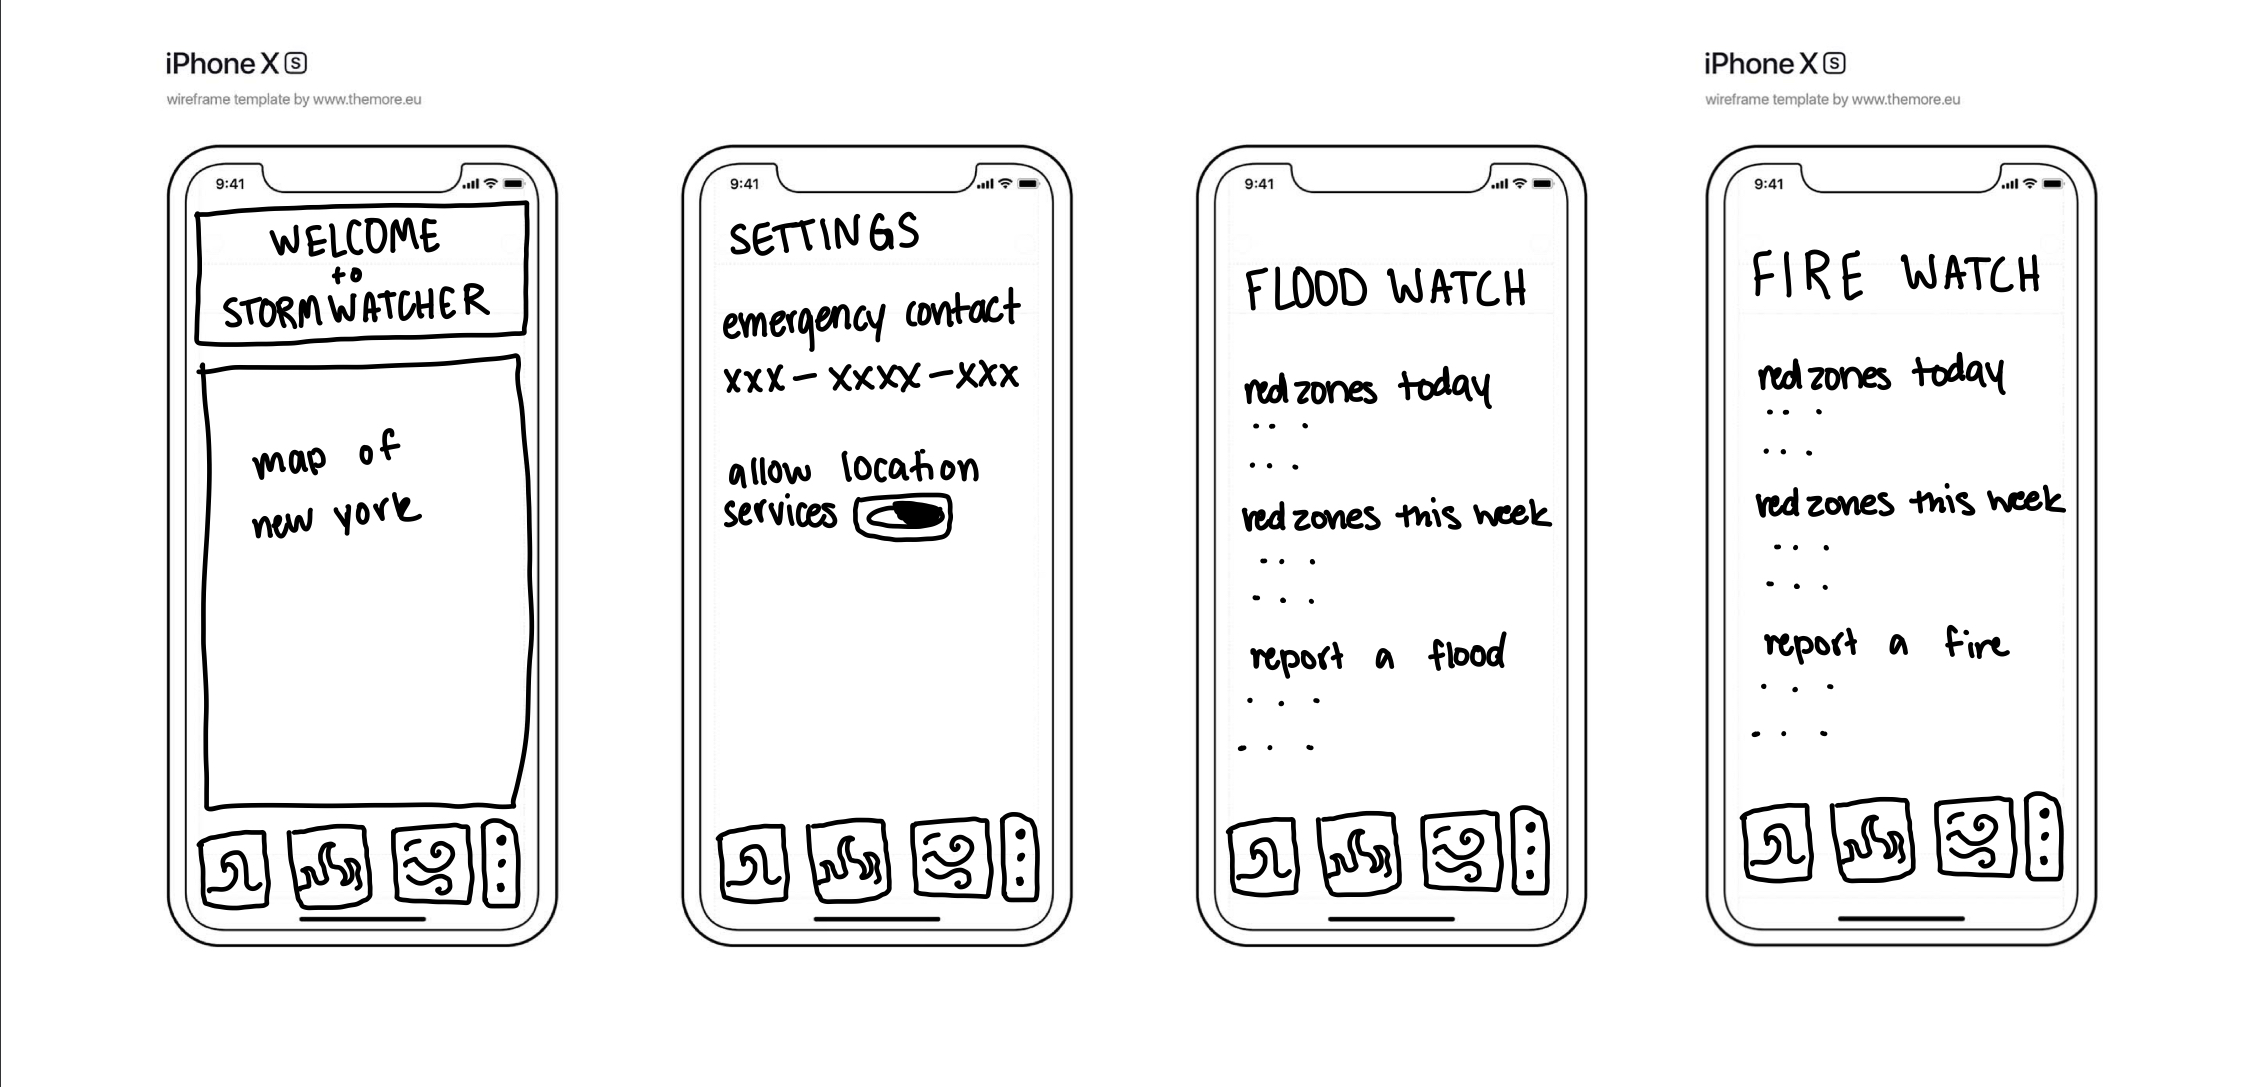 iPhone X S
wireframe template by www.themore.eu
9:41
WELCOME
to
STORMWATCHER
map of
new york
9:41
SETTINGS
emergency contact
xxx - xxxx - xxx
allow location
services
9:41
FLOOD WATCH
red zones today
...
...
red zones this week
...
...
report a flood
...
...
iPhone X S
wireframe template by www.themore.eu
9:41
FIRE WATCH
red zones today
...
...
red zones this week
...
...
report a fire
...
...